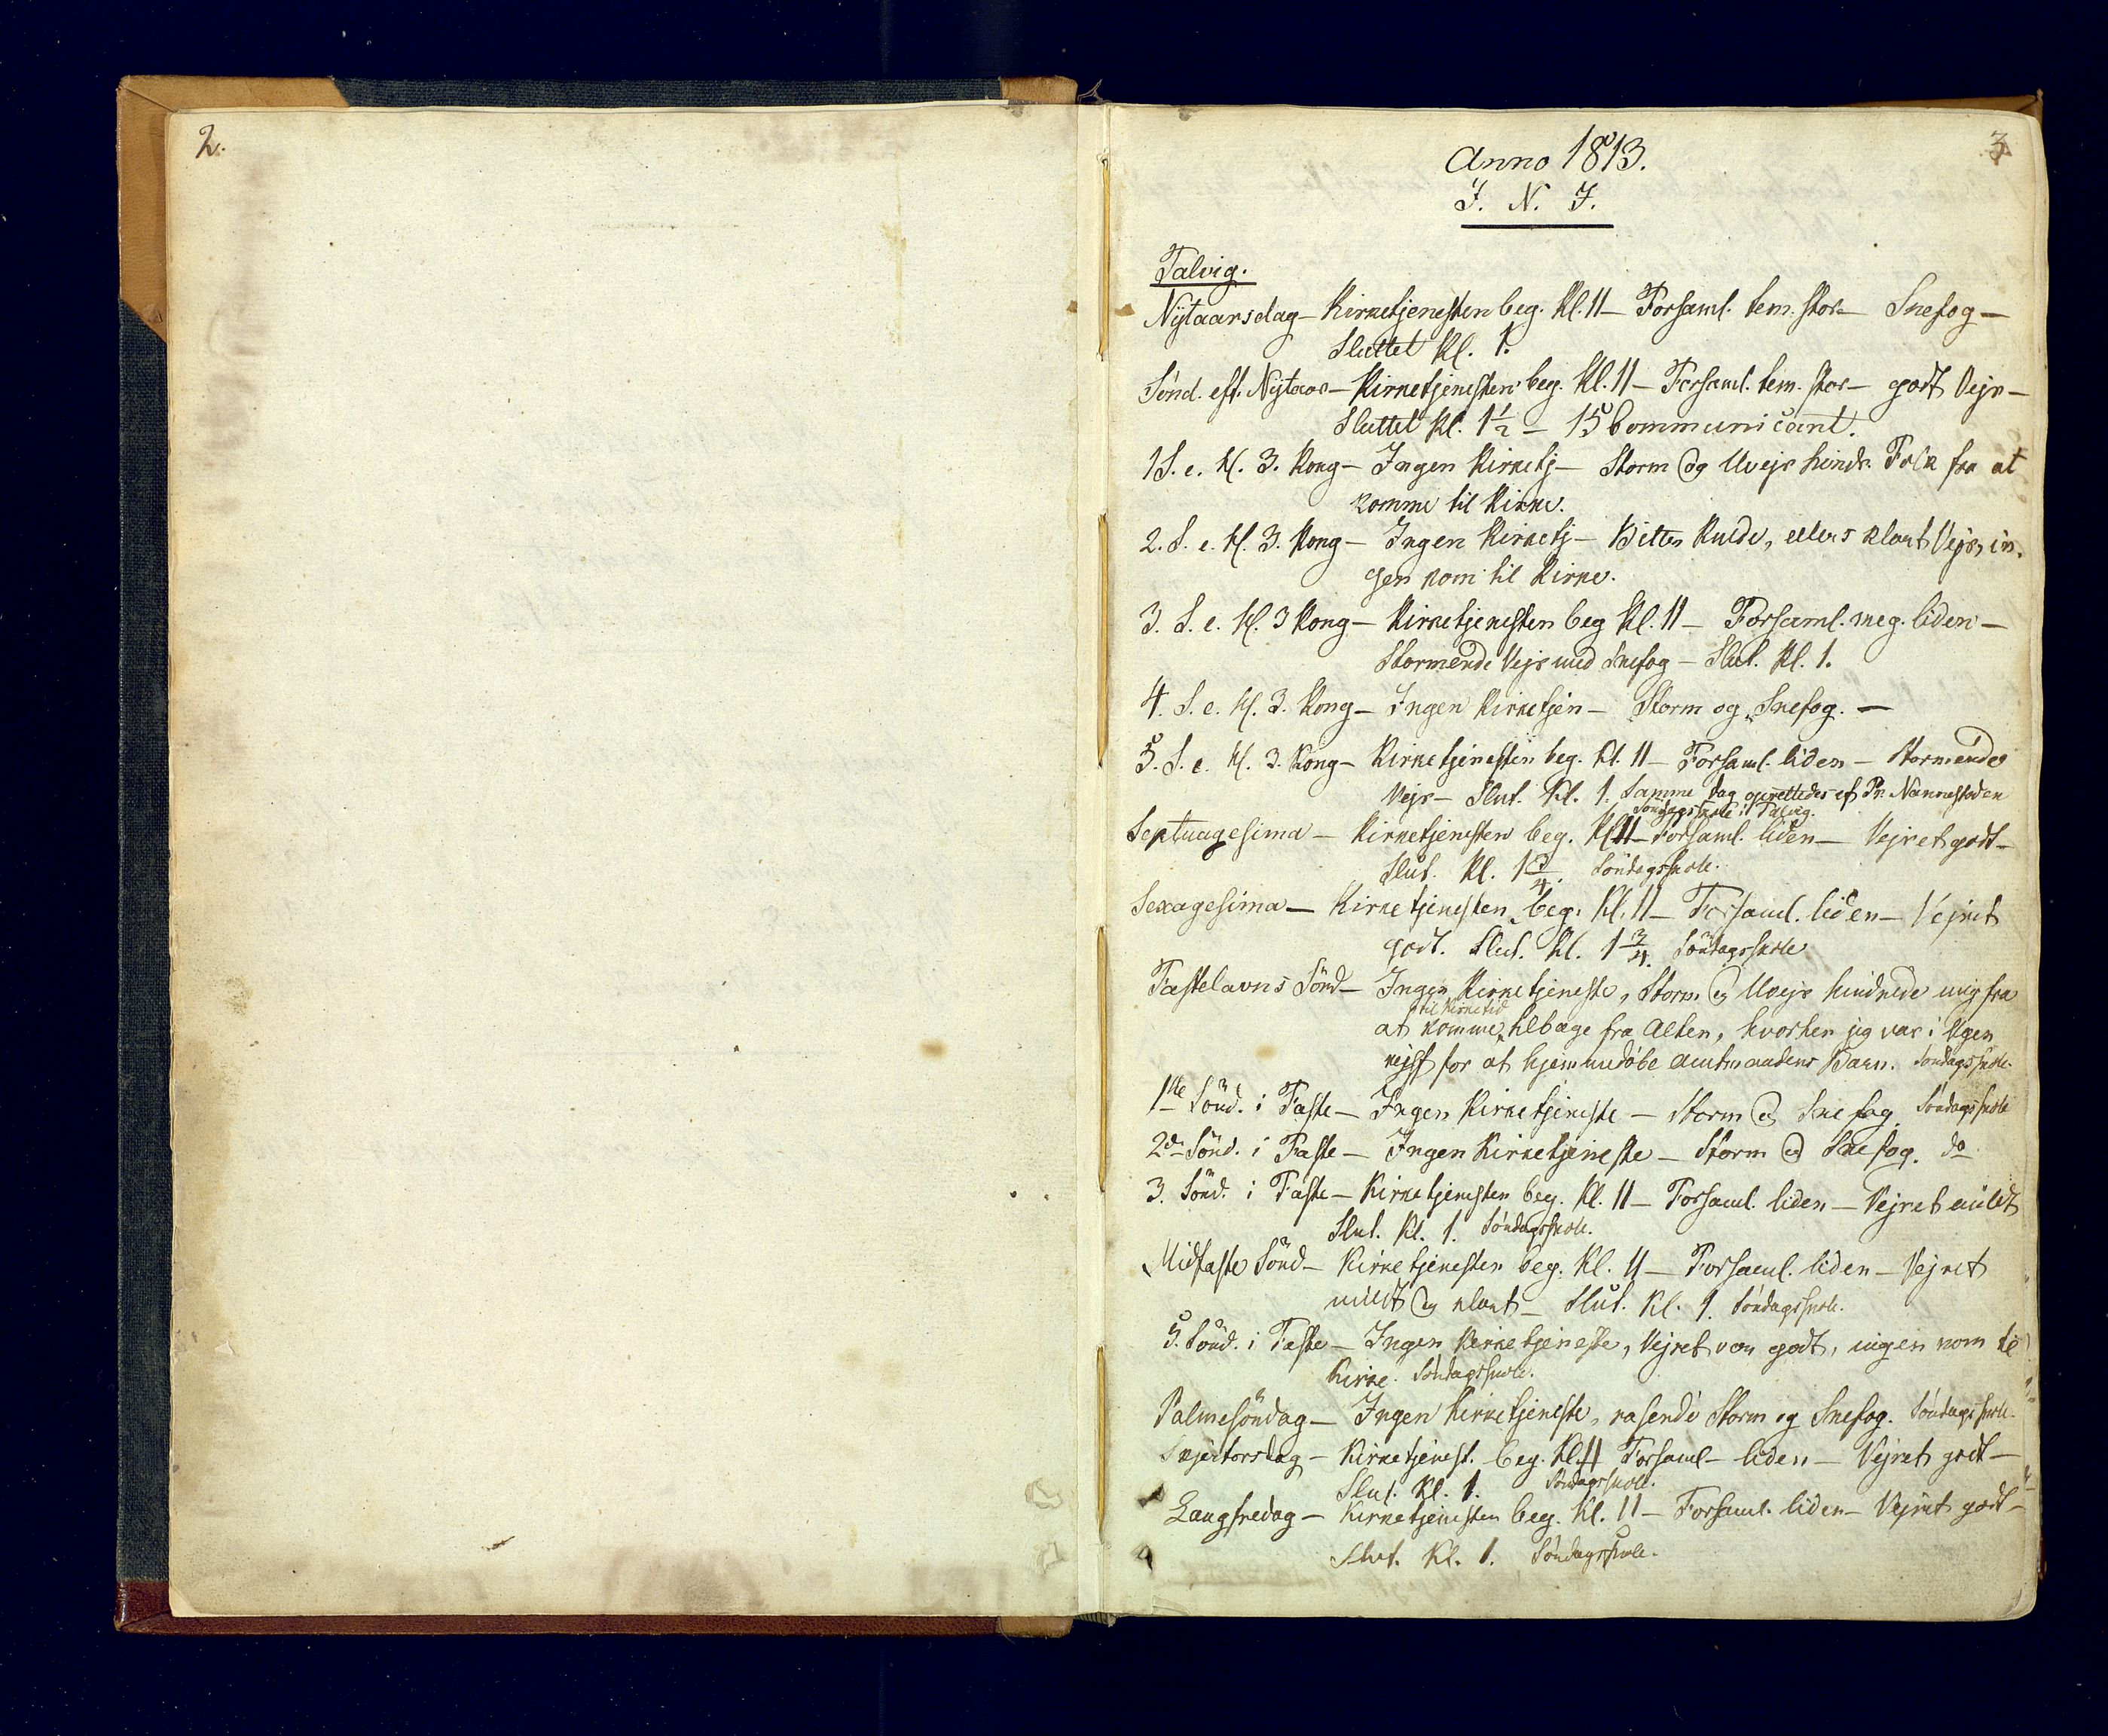 2.
3.
Anno 1813.
J. N. J.
Talvig.
Nytaarsdag – Kirketjenesten beg. Kl. 11 – Forsaml. tem. stor – Snefog –
Sluttet Kl. 1.
Sönd. eft. Nytaar – Kirketjenesten beg. Kl. 11 – Forsaml. tem. stor – godt Vejr –
Sluttet Kl. 1½ – 15 Communicant.
1 S. e. H. 3. Kong – Ingen Kirketj – Storm og Uvejr hindr. Folk fra at
komme til Kirke.
2. S. e. H. 3. Kong – Ingen Kirketj – Bitter Kulde, ellers klart Vejr, in-
gen kom til Kirke.
3. S. e. H. 3 Kong – Kirketjenesten beg Kl. 11 – Forsaml. meg. liden –
Stormende Vejr med Snefog – Slut. Kl. 1.
4. S. e. H. 3. Kong – Ingen Kirketjen – Storm og Snefog. –
5. S. e. H. 3. Kong – Kirketjenesten beg. Kl. 11 – Forsaml. liden – Stormende
Vejr – Slut. Kl. 1. Samme Dag oprettedes af Pr. Nannestaden
Söndagsskole i Talvig.
Septuagesima – Kirketjenesten beg. Kl 11 – Forsaml. liden – Vejret godt –
Slut. Kl. 1¾. Söndagsskole.
Sexagesima – Kirketjenesten beg. Kl. 11 – Forsaml. liden – Vejret
godt. Slut. Kl. 1¾. Söndagsskole
Fastelavns Sönd – Ingen Kirketjeneste, Storm og Uvejr hindrede mig fra
til Kirketid
at komme tilbage fra Alten, hvorhen jeg var i Ugen
rejst for at hjemmedöbe Amtmandens Barn. Söndagsskole.
1ste Sönd. i Faste – Ingen Kirketjeneste – Storm og Snefog. Söndagsskole
2den Sönd. i Faste – Ingen Kirketjeneste – Storm og Snefog. do
3. Sönd. i Faste – Kirketjenesten beg. Kl. 11 – Forsaml. liden – Vejret mildt
Slut. Kl. 1. Söndagsskole.
Midfaste Sönd – Kirketjenesten beg. Kl. 11 – Forsaml. liden – Vejret
mildt og klart – Slut. Kl. 1. Söndagsskole.
5. Sönd. i Faste – Ingen Kirketjeneste, Vejret var godt, ingen kom til
Kirke. Söndagsskole.
Palmesöndag – Ingen Kirketjeneste, rasende Storm og Snefog. Söndagsskole.
Skjertorsdag – Kirketjenest. beg. Kl. 11 Forsaml – liden – Vejret godt –
Slut. Kl. 1. Söndagsskole.
Langfredag – Kirketjenesten beg. Kl. 11 – Forsaml. liden – Vejret godt –
Slut. Kl. 1. Söndagsskole.